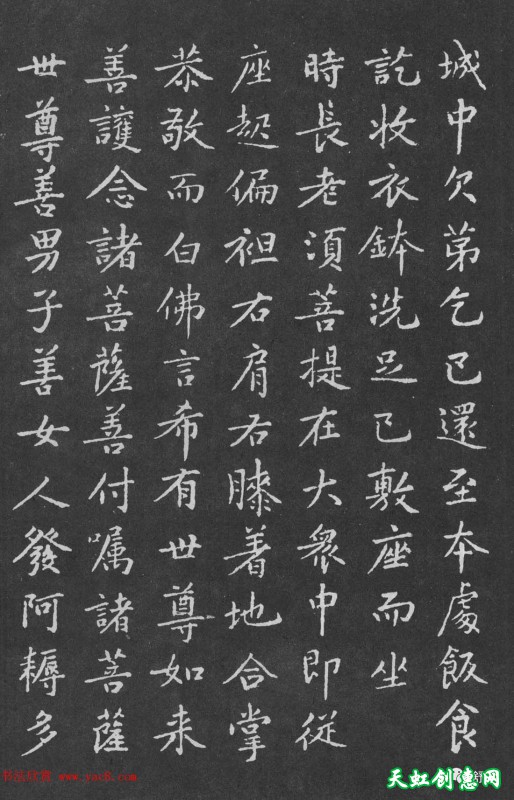 城中欠苐乞已還至本處飯食
訖收衣鉢洗足已敷座而坐
時長老須菩提在大衆中即從
座起偏袒右肩右膝着地合掌
恭敬而白佛言希有世尊如来
善護念諸菩薩善付嘱諸菩薩
世尊善男子善女人發阿耨多
书法欣赏 www.yac8.com
天虹创意网